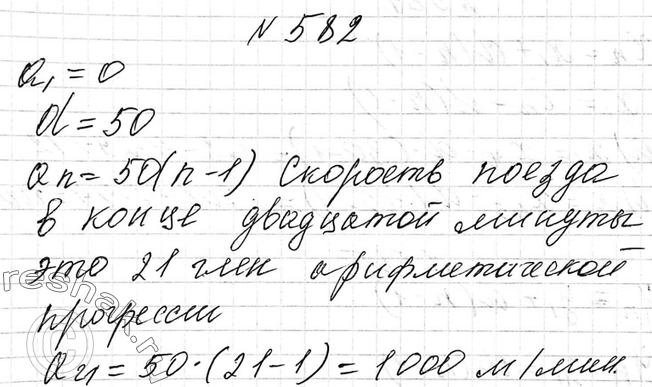 №582
a₁ = 0
d = 50
an = 50(n-1) Скорость поезда
в конце двадцатой минуты
это 21 член арифметической
прогрессии
a₂₁ = 50·(21-1) = 1000 м/мин